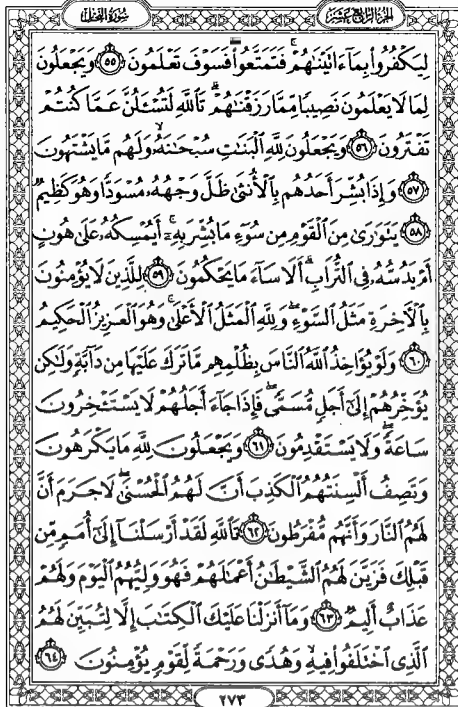 الجزء الرابع عشر
سورة النحل
لِيَكْفُرُوا۟ بِمَآ ءَاتَيْنَٰهُمْ ۚ فَتَمَتَّعُوا۟ فَسَوْفَ تَعْلَمُونَ ٥٥ وَيَجْعَلُونَ
لِمَا لَا يَعْلَمُونَ نَصِيبًا مِّمَّا رَزَقْنَٰهُمْ ۗ تَٱللَّهِ لَتُسْـَٔلُنَّ عَمَّا كُنتُمْ
تَفْتَرُونَ ٥٦ وَيَجْعَلُونَ لِلَّهِ ٱلْبَنَٰتِ سُبْحَٰنَهُۥ ۙ وَلَهُم مَّا يَشْتَهُونَ
٥٧ وَإِذَا بُشِّرَ أَحَدُهُم بِٱلْأُنثَىٰ ظَلَّ وَجْهُهُۥ مُسْوَدًّا وَهُوَ كَظِيمٌ
٥٨ يَتَوَٰرَىٰ مِنَ ٱلْقَوْمِ مِن سُوٓءِ مَا بُشِّرَ بِهِۦٓ ۚ أَيُمْسِكُهُۥ عَلَىٰ هُونٍ
أَمْ يَدُسُّهُۥ فِى ٱلتُّرَابِ ۗ أَلَا سَآءَ مَا يَحْكُمُونَ ٥٩ لِلَّذِينَ لَا يُؤْمِنُونَ
بِٱلْـَٔاخِرَةِ مَثَلُ ٱلسَّوْءِ ۖ وَلِلَّهِ ٱلْمَثَلُ ٱلْأَعْلَىٰ ۚ وَهُوَ ٱلْعَزِيزُ ٱلْحَكِيمُ
٦٠ وَلَوْ يُؤَاخِذُ ٱللَّهُ ٱلنَّاسَ بِظُلْمِهِم مَّا تَرَكَ عَلَيْهَا مِن دَآبَّةٍ وَلَٰكِن
يُؤَخِّرُهُمْ إِلَىٰٓ أَجَلٍ مُّسَمًّى ۖ فَإِذَا جَآءَ أَجَلُهُمْ لَا يَسْتَـْٔخِرُونَ
سَاعَةً ۖ وَلَا يَسْتَقْدِمُونَ ٦١ وَيَجْعَلُونَ لِلَّهِ مَا يَكْرَهُونَ
وَتَصِفُ أَلْسِنَتُهُمُ ٱلْكَذِبَ أَنَّ لَهُمُ ٱلْحُسْنَىٰ ۖ لَا جَرَمَ أَنَّ
لَهُمُ ٱلنَّارَ وَأَنَّهُم مُّفْرَطُونَ ٦٢ تَٱللَّهِ لَقَدْ أَرْسَلْنَآ إِلَىٰٓ أُمَمٍ مِّن
قَبْلِكَ فَزَيَّنَ لَهُمُ ٱلشَّيْطَٰنُ أَعْمَٰلَهُمْ فَهُوَ وَلِيُّهُمُ ٱلْيَوْمَ وَلَهُمْ
عَذَابٌ أَلِيمٌ ٦٣ وَمَآ أَنزَلْنَا عَلَيْكَ ٱلْكِتَٰبَ إِلَّا لِتُبَيِّنَ لَهُمُ
ٱلَّذِى ٱخْتَلَفُوا۟ فِيهِ ۙ وَهُدًى وَرَحْمَةً لِّقَوْمٍ يُؤْمِنُونَ ٦٤
٢٧٣